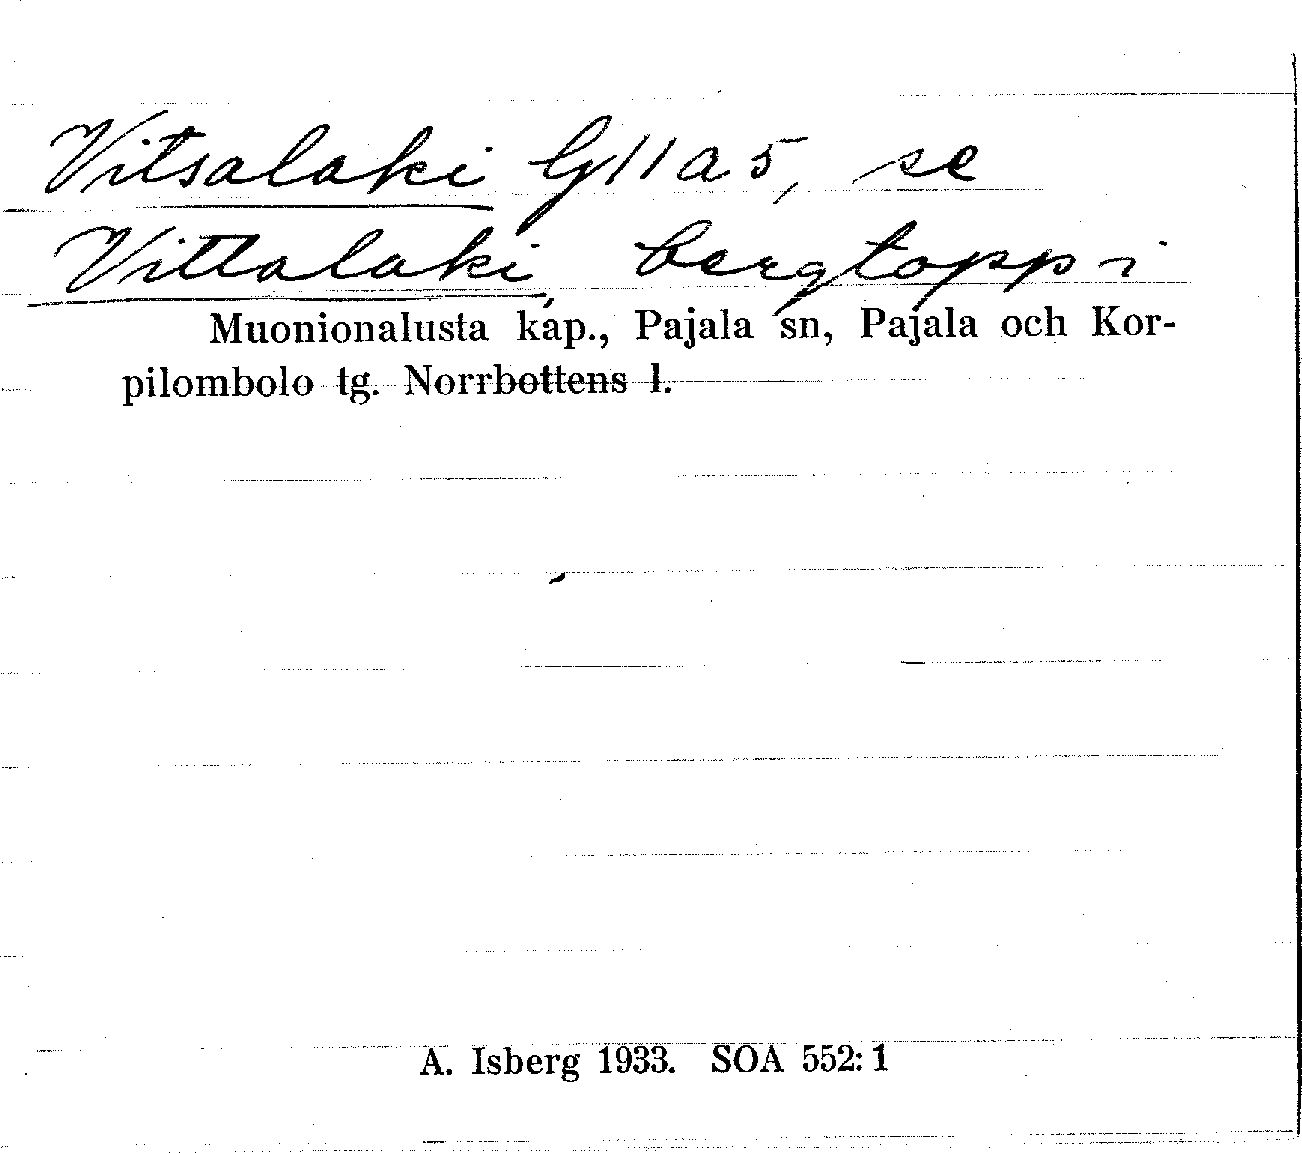 Vitsalaki G11a5, se
Vittalaki, bergtopp i
Muonionalusta kap., Pajala sn, Pajala och Kor-
pilombolo tg. Norrbottens l.
A. Isberg 1933. SOA 552:1